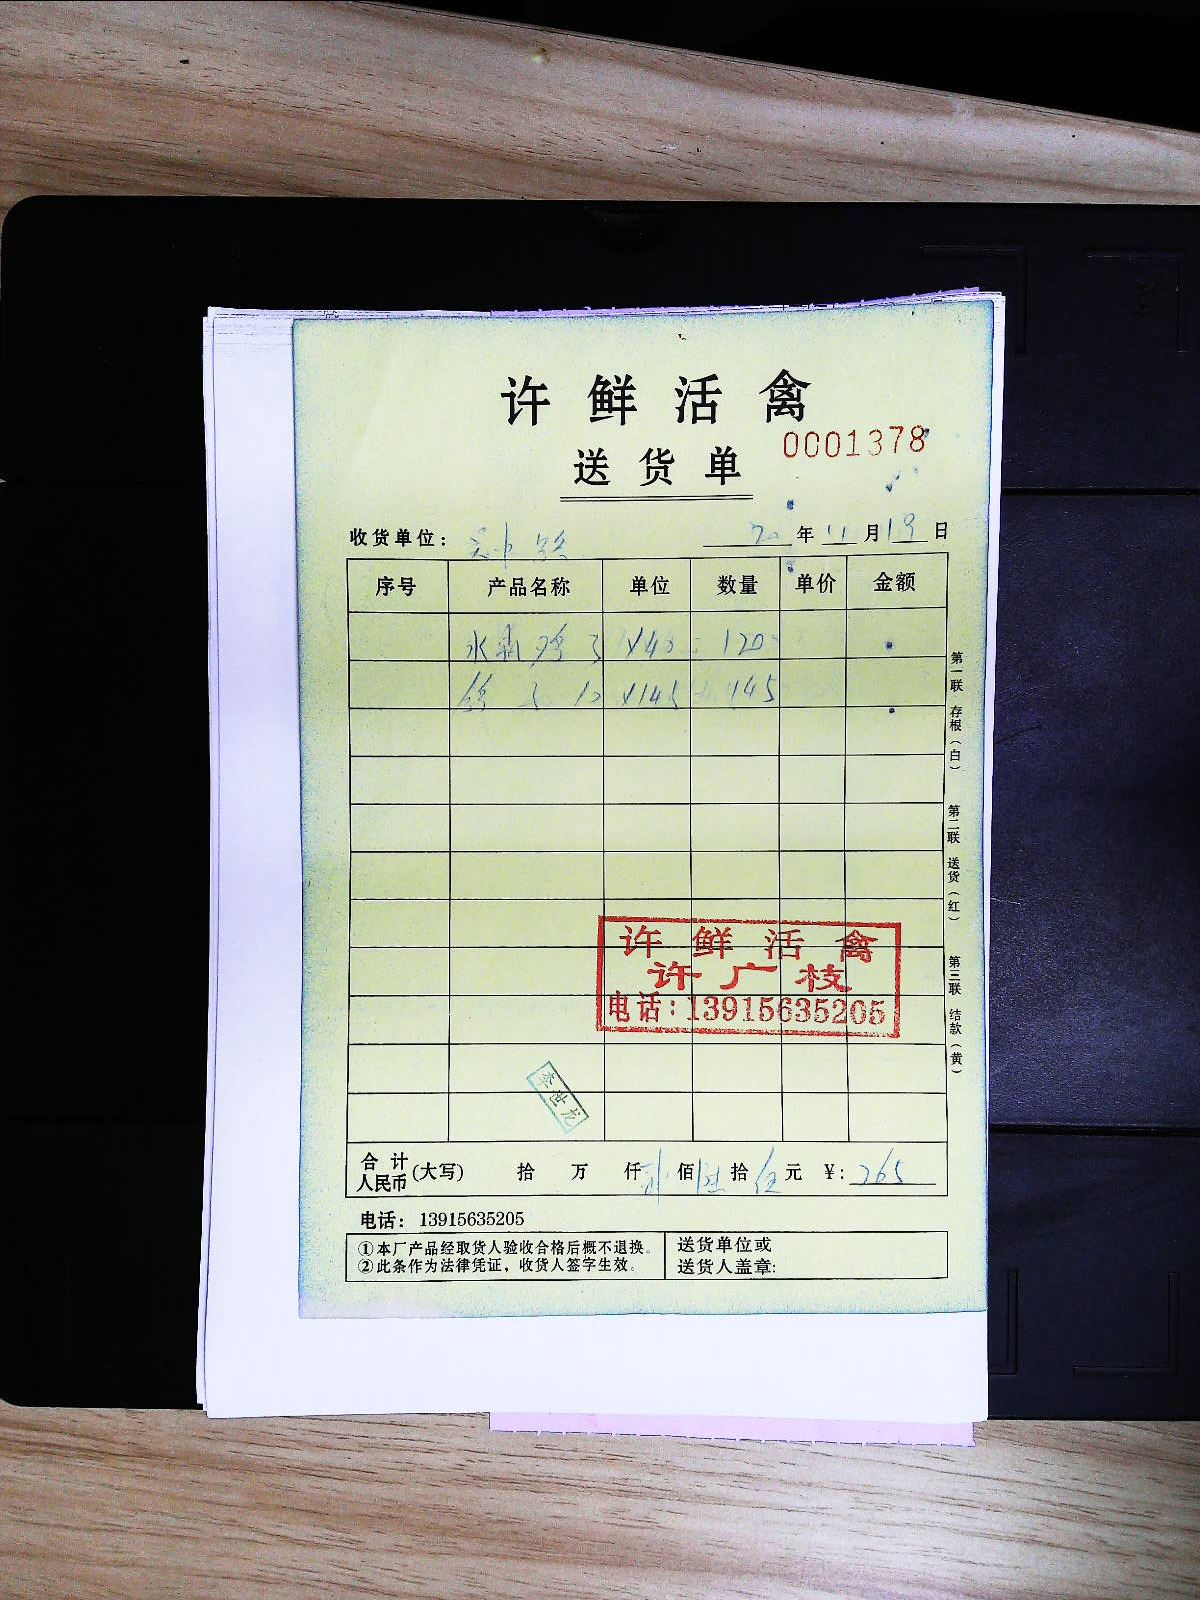 许鲜活禽
0001378
送货单
收货单位: 20年11月19日
序号 产品名称 单位 数量 单价 金额
水 鸡 3 ×40 = 120
10 ×14.5 = 145
第一联 存根(白)
第二联 送货(红)
第三联 结款(黄)
许鲜活禽
许广枝
电话:13915635205
李世龙
合计人民币(大写) 拾 万 仟 贰佰陆拾伍元 ¥:265
电话: 13915635205
①本厂产品经取货人验收合格后概不退换。
②此条作为法律凭证,收货人签字生效。
送货单位或
送货人盖章: